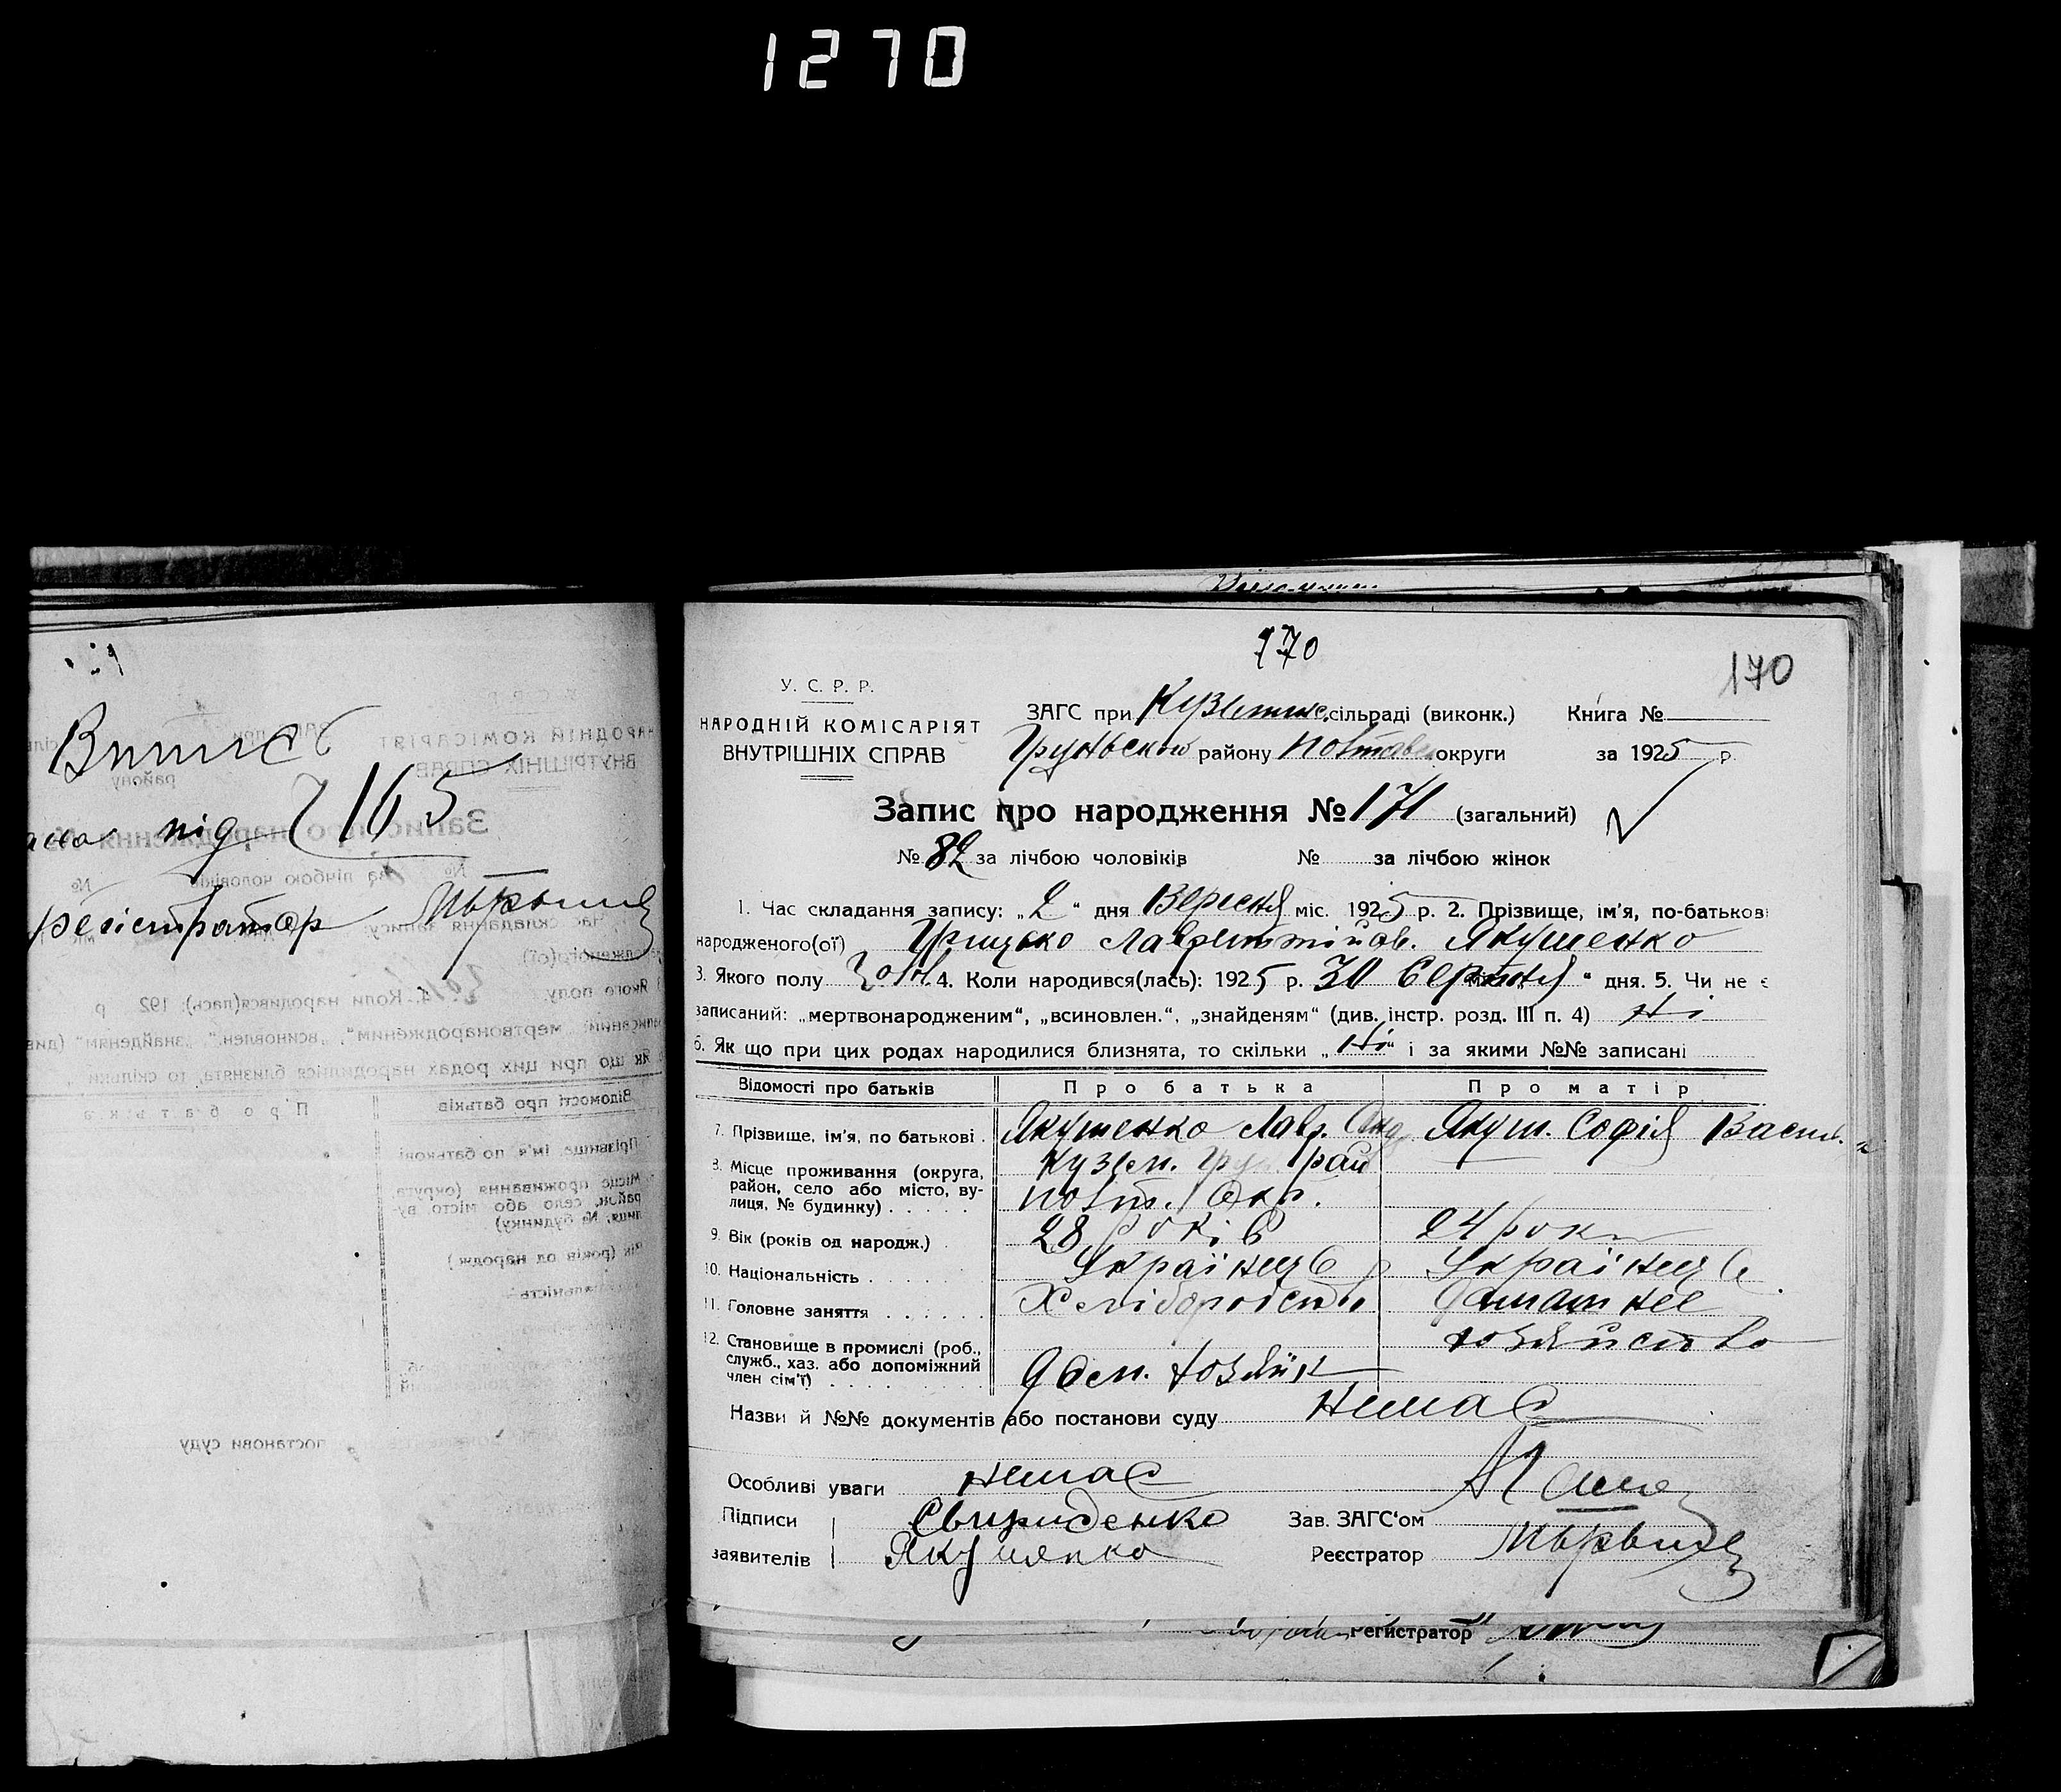 1270
Выпис
під № 165
регістратор
170
170
У. С. Р. Р.
НАРОДНІЙ КОМІСАРІЯТ
ВНУТРІШНІХ СПРАВ
ЗАГС при Кузьмин. сільраді (виконк.) Книга №
Груньского району Полтавс. округи за 1925 р.
Запис про народження № 171 (загальний)
№ 82 за лічбою чоловіків № за лічбою жінок
1. Час складання запису: „2“ дня Вересня міс. 1925 р. 2. Прізвище, ім'я, по-батькові
народженого(ої) Грицько Лаврентійов. Якушенко
3. Якого полу Чолов. 4. Коли народився(лась): 1925 р. 30 Серпня “ дня. 5. Чи не є
записаний: „мертвонародженим“, „всиновлен.“, „знайденям“ (див. інстр. розд. III п. 4) Ні
6. Як що при цих родах народилися близнята, то скільки „Ні“ і за якими №№ записані
Відомості про батьків Про батька Про матір
7. Прізвище, ім'я, по батькові . Якушенко Лавр. Анд Якуш. Софія Васил.
8. Місце проживання (округа, район, село або місто, вулиця, № будинку) . . . . . Кузьм. Гру рай
Полт. Окр.
9. Вік (років од народж.) 28 років 24 роки
10. Національність . . . . . . Українць Українць
11. Головне заняття . . . . . . Хліборобство Домашнее
хозяйство
12. Становище в промислі (роб., служб., хаз. або допоміжний член сім'ї) . . . . . . . . . хозяїн
Назви й №№ документів або постанови суду Немає
Особливі уваги Немає
Підписи Свириденко Зав. ЗАГС‘ом
заявителів Якушянко Реєстратор
Регистратор